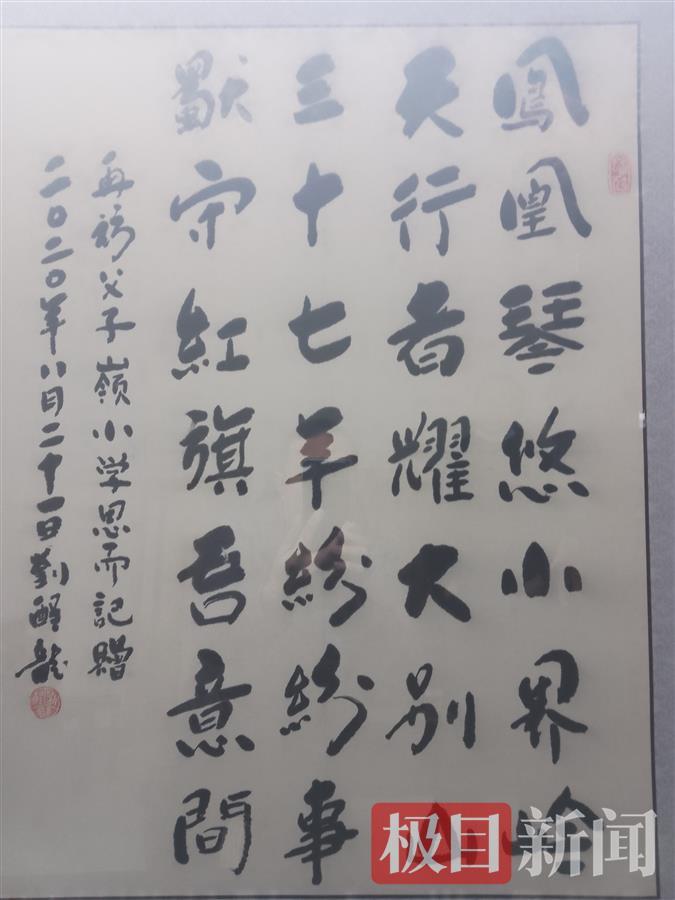 鳳凰琴悠小界岭
天行者耀大别山
三十七年紛紛事
獻守紅旗吾意間
再訪父子嶺小学思而記贈
二〇二〇年八月二十一日劉醒龍
极目新闻